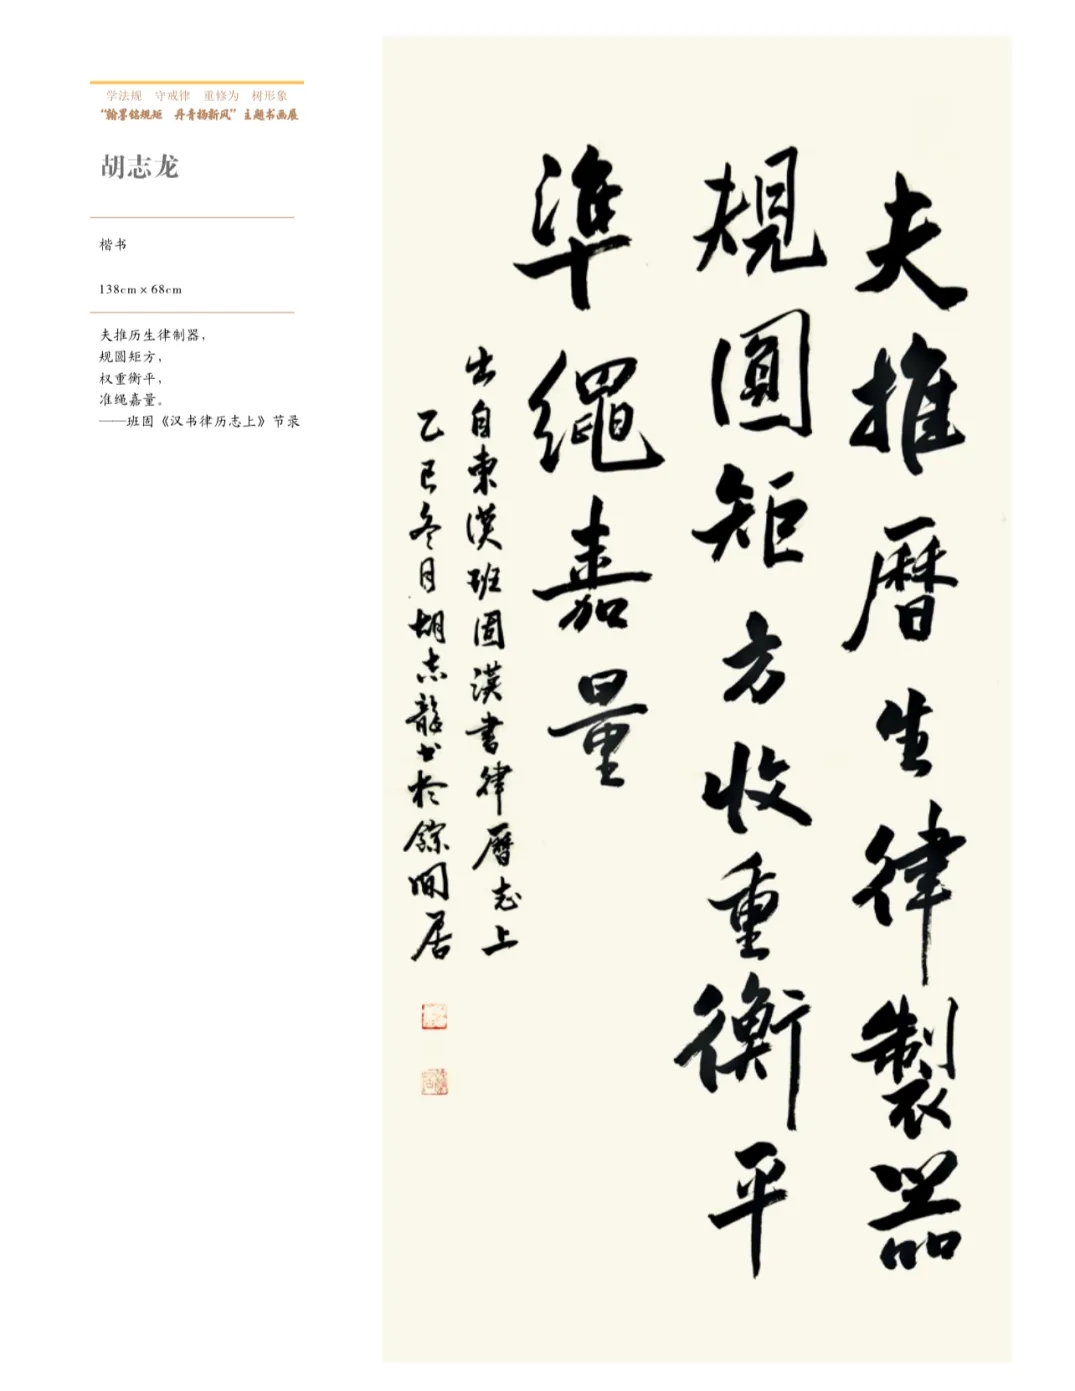 学法规 守戒律 重修为 树形象
“翰墨铭规矩 丹青扬新风”主题书画展
胡志龙
楷书
138cm × 68cm
夫推历生律制器，
规圆矩方，
权重衡平，
准绳嘉量。
——班固《汉书律历志上》节录
夫推曆生律製器
規圓矩方收重衡平
準繩嘉量
出自東漢班固漢書律曆志上
乙巳冬月胡志龍书於餘閒居